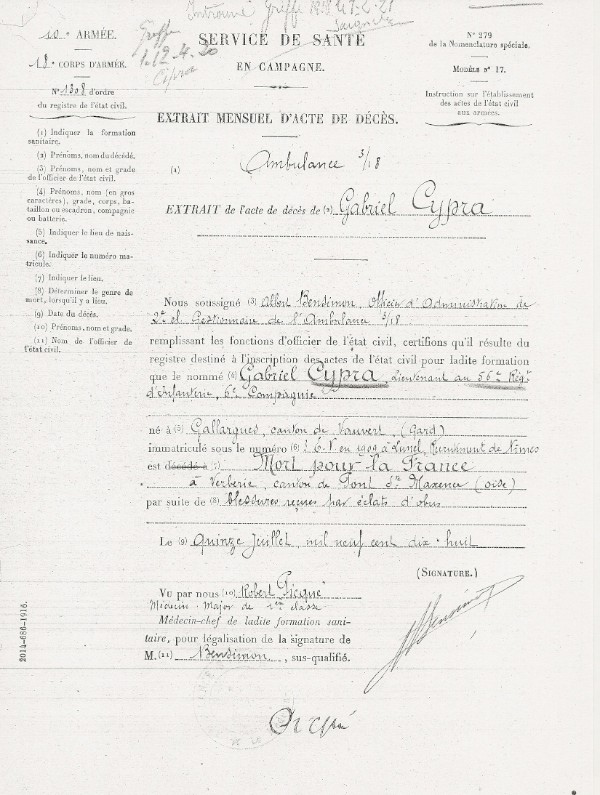 10e ARMÉE.
18e CORPS D'ARMÉE.
N° 1308 d'ordre
du registre de l'état civil.
(1) Indiquer la formation
sanitaire.
(2) Prénoms, nom du décédé.
(3) Prénoms, nom et grade
de l'officier de l'état civil.
(4) Prénoms, nom (en gros
caractères), grade, corps, ba-
taillon ou escadron, compagnie
ou batterie.
(5) Indiquer le lieu de nais-
sance.
(6) Indiquer le numéro ma-
tricule.
(7) Indiquer le lieu.
(8) Déterminer le genre de
mort, lorsqu'il y a lieu.
(9) Date du décès.
(10) Prénoms, nom et grade.
(11) Nom de l'officier de
l'état civil.
Greffe
Cypra
SERVICE DE SANTÉ
EN CAMPAGNE.
N° 279
de la Nomenclature spéciale.
MODÈLE N° 17.
Instruction sur l'établissement
des actes de l'état civil
aux armées.
EXTRAIT MENSUEL D'ACTE DE DÉCÈS.
(1) Ambulance 3/18
EXTRAIT de l'acte de décès de (2) Gabriel Cypra
Nous soussigné (3) Albert Bensimon, Officier d'Administration de
2e cl. Gestionnaire de l'Ambulance 3/18
remplissant les fonctions d'officier de l'état civil, certifions qu'il résulte du
registre destiné à l'inscription des actes de l'état civil pour ladite formation
que le nommé (4) Gabriel Cypra, Lieutenant au 56e Régt
d'infanterie, 6e Compagnie
né à (5) Gallargues, canton de Vauvert, (Gard)
immatriculé sous le numéro (6) en 1909 à Lunel, Recrutement de Nîmes
est décédé à (7) Mort pour la France
à Verberie, canton de Pont Ste Maxence (oise)
par suite de (8) blessures reçues par éclats d'obus
Le (9) Quinze Juillet, mil neuf cent dix-huit
(SIGNATURE.)
VU par nous (10) Robert Picqué
Médecin-Major de 1ère classe
Médecin-chef de ladite formation sani-
taire, pour légalisation de la signature de
M. (11) Bensimon, sus-qualifié.
2014-686-1916.